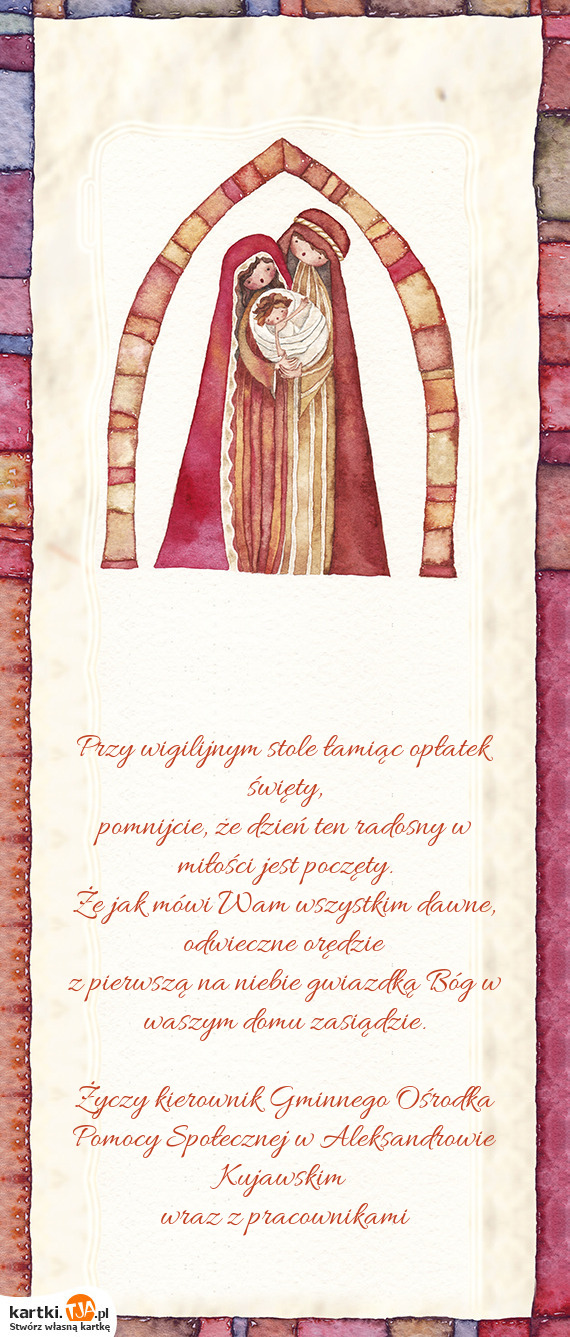 Przy wigilijnym stole łamiąc opłatek
święty,
pomnijcie, że dzień ten radosny w
miłości jest poczęty.
Że jak mówi Wam wszystkim dawne,
odwieczne orędzie
z pierwszą na niebie gwiazdką Bóg w
waszym domu zasiądzie.
Życzy kierownik Gminnego Ośrodka
Pomocy Społecznej w Aleksandrowie
Kujawskim
wraz z pracownikami
kartki.TJA.pl
Stwórz własną kartkę